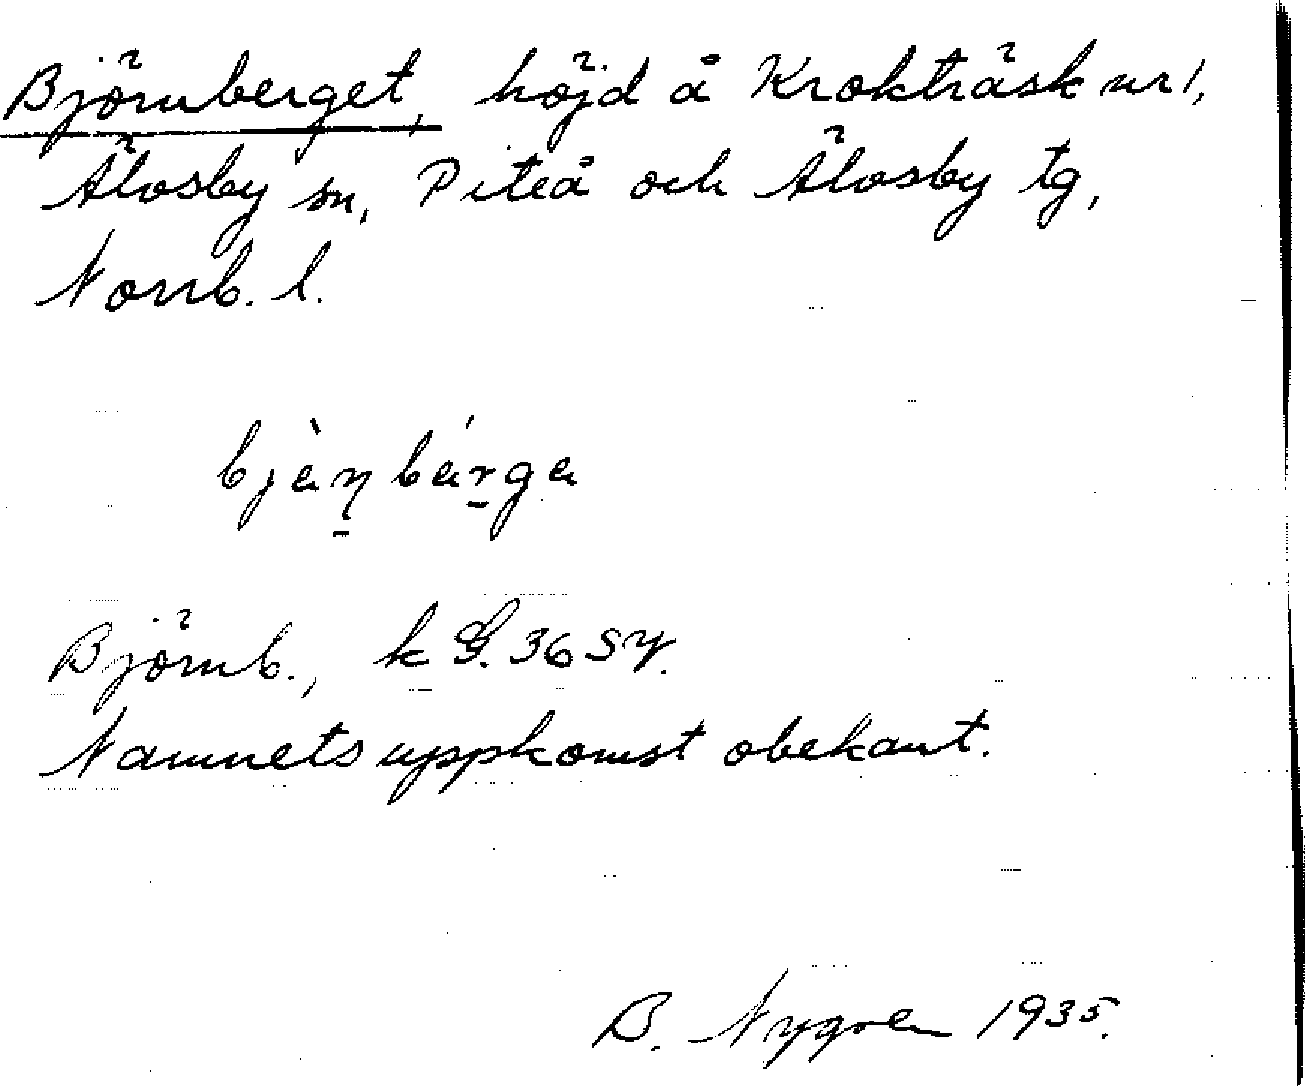 Björnberget, höjd å Krokträsk nr 1,
Älvsby sn, Piteå och Älvsby tg,
Norrb. l.
Björnb., k G. 36 SV.
Namnets uppkomst obekant.
B. Nygren 1935.